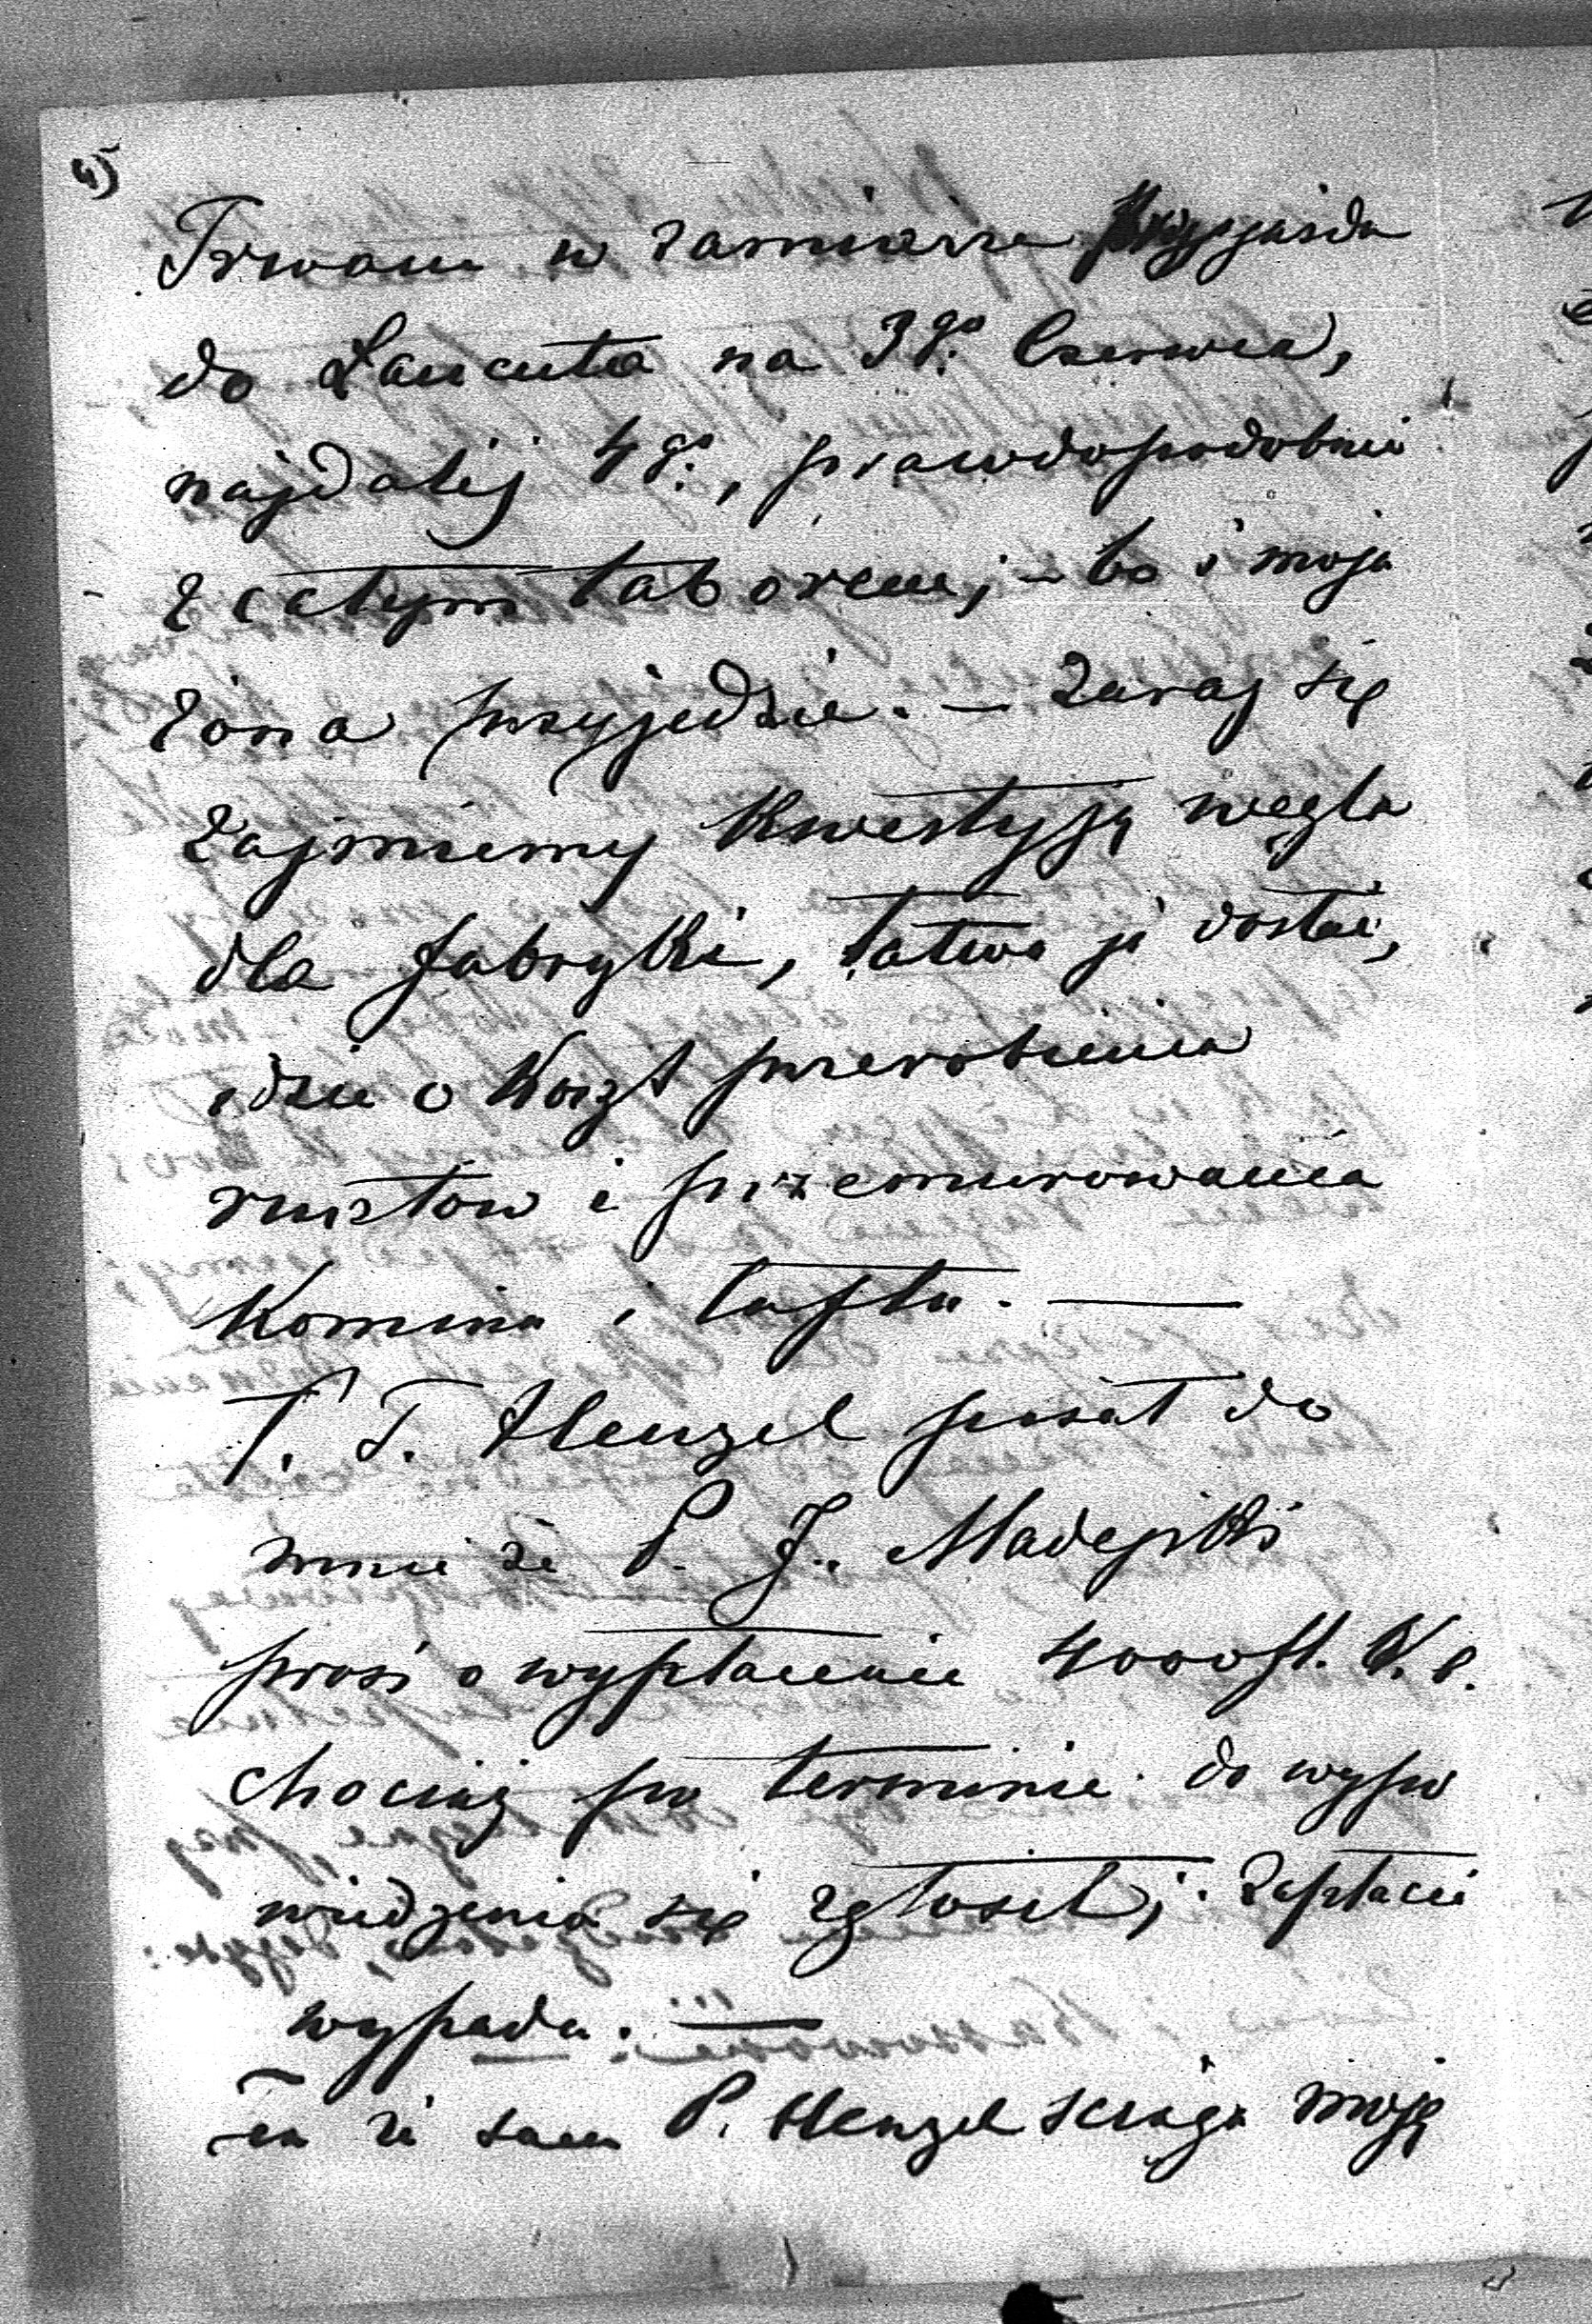 4)
Trwam w zamiarze przyjazda
do Łańcuta na 3go Czerwca,
najdalej 4go, prawdopodobnie
z całym taborem; – bo i moja
żona przyjedzie. – Zaraz się
zajmiemy kwestyją węgla
dla fabryki, łatwo je dostać,
idzie o koszt przerobienia
rusztów i przemurowania
Komina i luftu. —
T. T. Henzel pisał do
mnie że P. J. Madejski
prosi o wypłacenie 4000 fl.
chociaż po terminie do wypo
wiedzenia się zgłosił; zapłacić
wypada. —
że sam P. Henzel ściąga moją